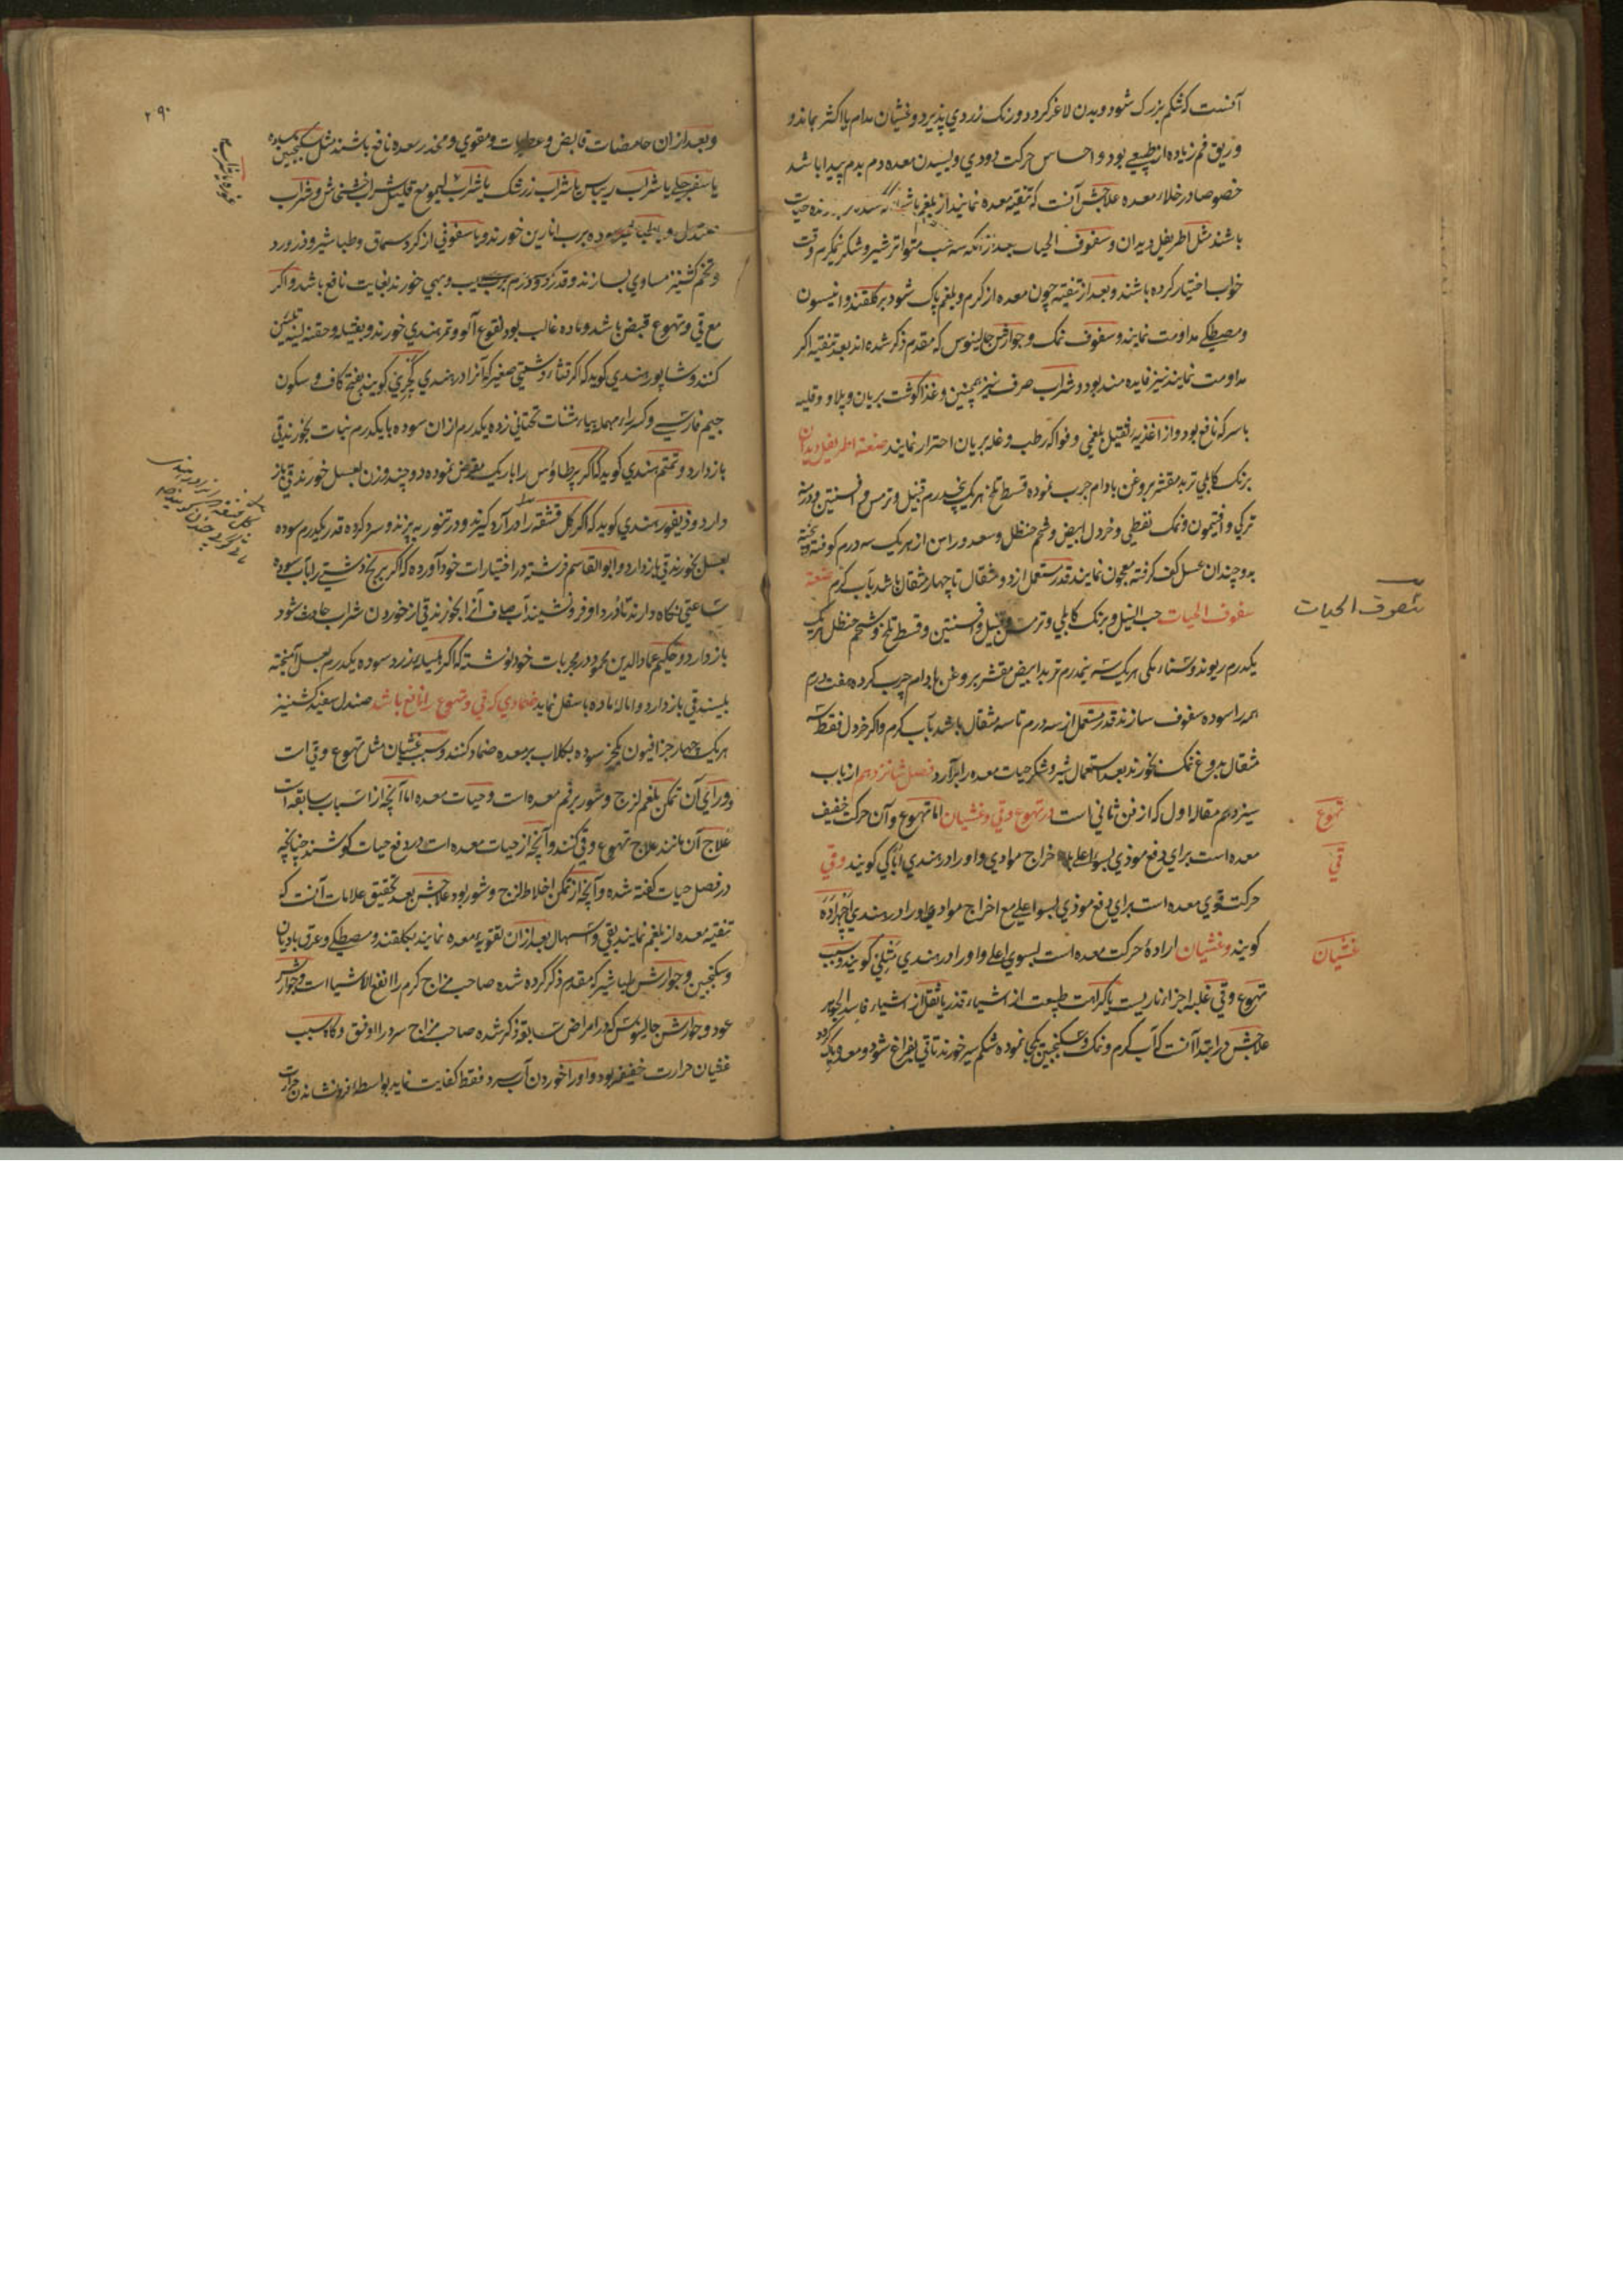 آنست که شکم بزرک شود و بدن لاغر کردد و رنک زردی پذیرد و غثیان مدام یا اکثر بماند و
و ریق فم زیاده از طبیعی بود و احساس حرکت دودی و لیسیدن معده دم بدم پیدا باشد
خصوصا در خلاء معده علاجش آنست که تنقیه معده نمایند از بلغم
باشند مثل اطریفل دیدان و سفوف الحیات بعد ازانکه سه شب متواتر شیر و شکر نیمکرم وقت
خواب اختیار کرده باشند و بعد از تنقیه چون معده از کرم و بلغم پاک شود بر کلقند و انیسون
و مصطکی مداومت نمایند و سفوف نمک و جوارش جالینوس که مقدم ذکر شده اند بعد تنقیه اکر
مداومت نمایند نیز فایده مند بود و شراب صرف نیز همچنین و غذا کوشت بریان و پلاو و قلیه
با سرکه نافع بود و از اغذیه ثقیل بلغمی و فواکه رطب و غله بریان احتراز نمایند صنعة اطریفل دیدان
برنک کابلی تربد مقشر بروغن بادام چرب نموده قسط تلخ هر یک پنجدرم قنبیل و ترمس و افسنتین و درمنه
ترکی و افتیمون و نمک نفطی و خردل ابیض و شحم حنظل و سعد و راسن از هر یک سه درم کوفته بیخته
بدو چندان عسل کف کرفته معجون نمایند قدر مستعمل از دو مثقال تا چهار مثقال باشد بآب کرم صنعة
سفوف الحیات حب النیل و برنک کابلی و ترمس و قنبیل و افسنتین و قسط تلخ و شحم حنظل هر یک
یکدرم ریوند و سناء مکی هر یک سه نیمدرم تربد ابیض مقشر بروغن بادام چرب کرده هفت درم
همه را سوده سفوف سازند قدر مستعمل از سه درم تا سه مثقال باشد بآب کرم و اکر خردل فقط سه
مثقال بدوغ نمک بخورند بعد استعمال شیر و شکر حیات معده را برآرد فصل شانزدهم از باب
سیزدهم مقاله اول که از فن ثانی است در تهوع و قی و غثیان اما تهوع و آن حرکت خفیف
معده است برای دفع موذی بسوی اعلی بلا اخراج موادی و او را در هندی ابکایی کویند و قی
حرکت قوی معده است برای دفع موذی بسوی اعلی مع اخراج موادی و او را در هندی
کویند و غثیان اراده حرکت معده است بسوی اعلی و او را در هندی متلی کویند و سبب
تهوع و قی غلبه اجزاء ناریست یا کراهت طبیعت از اشیاء قذر یا ثقل از اشیاء فاسد الجوهر
علاجش در ابتدا آنست که آب کرم و نمک و سکنجبین یکجا نموده شکم سیر خورند تا قی بفراغ شود و معده پاک کردد
سفوف الحیات
تهوع
قی
غثیان
۲۹۰
و بعد ازان حامضات قابض و عطریات و مقوی و مخدر معده نافع باشند مثل سکنجبین
یا سفرجلی یا شراب ریباس یا شراب زرشک یا شراب لیمو مع قلیل شراب خشخاش و شراب
صندل و یا طباشیر سوده برب انارین خورند و یا سفوفی از کرد سماق و طباشیر و زرورد
و تخم کشنیز مساوی بسازند و قدر دو درم برب سیب و بهی خورند بغایت نافع باشد و اکر
مع قی و تهوع قبض باشد و ماده غالب بود نقوع آلو و تمر هندی خورند و بفتیله و حقنه لینه تلیین
کنند و شاپور هندی کوید که اکر قثاء دشتی صغیر که آنرا در هندی کچری کویند بفتح کاف و سکون
جیم فارسی و کسر راء مهمله بیاء مثنات تحتانی زده یکدرم ازان سوده با یکدرم نبات بخورند قی
باز دارد و تمتم هندی کوید که اکر پر طاؤس را باریک بمقراض نموده دو چند وزن بعسل خورند قی باز
دارد و ذیفور هندی کوید که اکر کل فشفه را در آرد کیرند و در تنور بپزند و سرد کرده قدر یکدرم سوده
بعسل بخورند قی باز دارد و ابو القاسم فرشته در اختیارات خود آورده که اکر برنج دشتی را بآب سوده
ساعتی نکاه دارند تا درد او فرو نشیند آب صاف آنرا بخورند قی از خوردن شراب حادث شود
باز دارد و حکیم عماد الدین محمود در مجربات خود نوشته که اکر هلیله زرد سوده یکدرم بعسل آمیخته
بلیسند قی باز دارد و اماله ماده باسفل نماید ضمادی که قی و تهوع را نافع باشد صندل سفید کشنیز
هر یک چهار جزء افیون یکجزء سوده بکلاب بر معده ضماد کنند و سبب غثیان مثل تهوع و قی است
و ورای آن تمکن بلغم لزج و شور بر فم معده است و حیات معده اما آنچه از اسباب سابقه است
علاج آن مانند علاج تهوع و قی کنند و آنچه از حیات معده است در دفع حیات کوشند چنانچه
در فصل حیات کفته شده و آنچه از تمکن اخلاط لزج و شور بود علاجش بعد تحقیق علامات آنست که
تنقیه معده از بلغم نمایند بقی و اسهال بعد ازان تقویه معده نمایند بکلقند و مصطکی و عرق بادیان
و سکنجبین و جوارش طباشیر که مقدم ذکر کرده شده صاحب مزاج کرم را انفع الاشیا است و جوارش
عود و جوارش جالینوس که در امراض سابقه ذکر شده صاحب مزاج سرد را اوفق و کاه سبب
غثیان حرارت خفیفه بود و او را خوردن آب سرد فقط کفایت نماید بواسطه فرو نشاندن حرارت